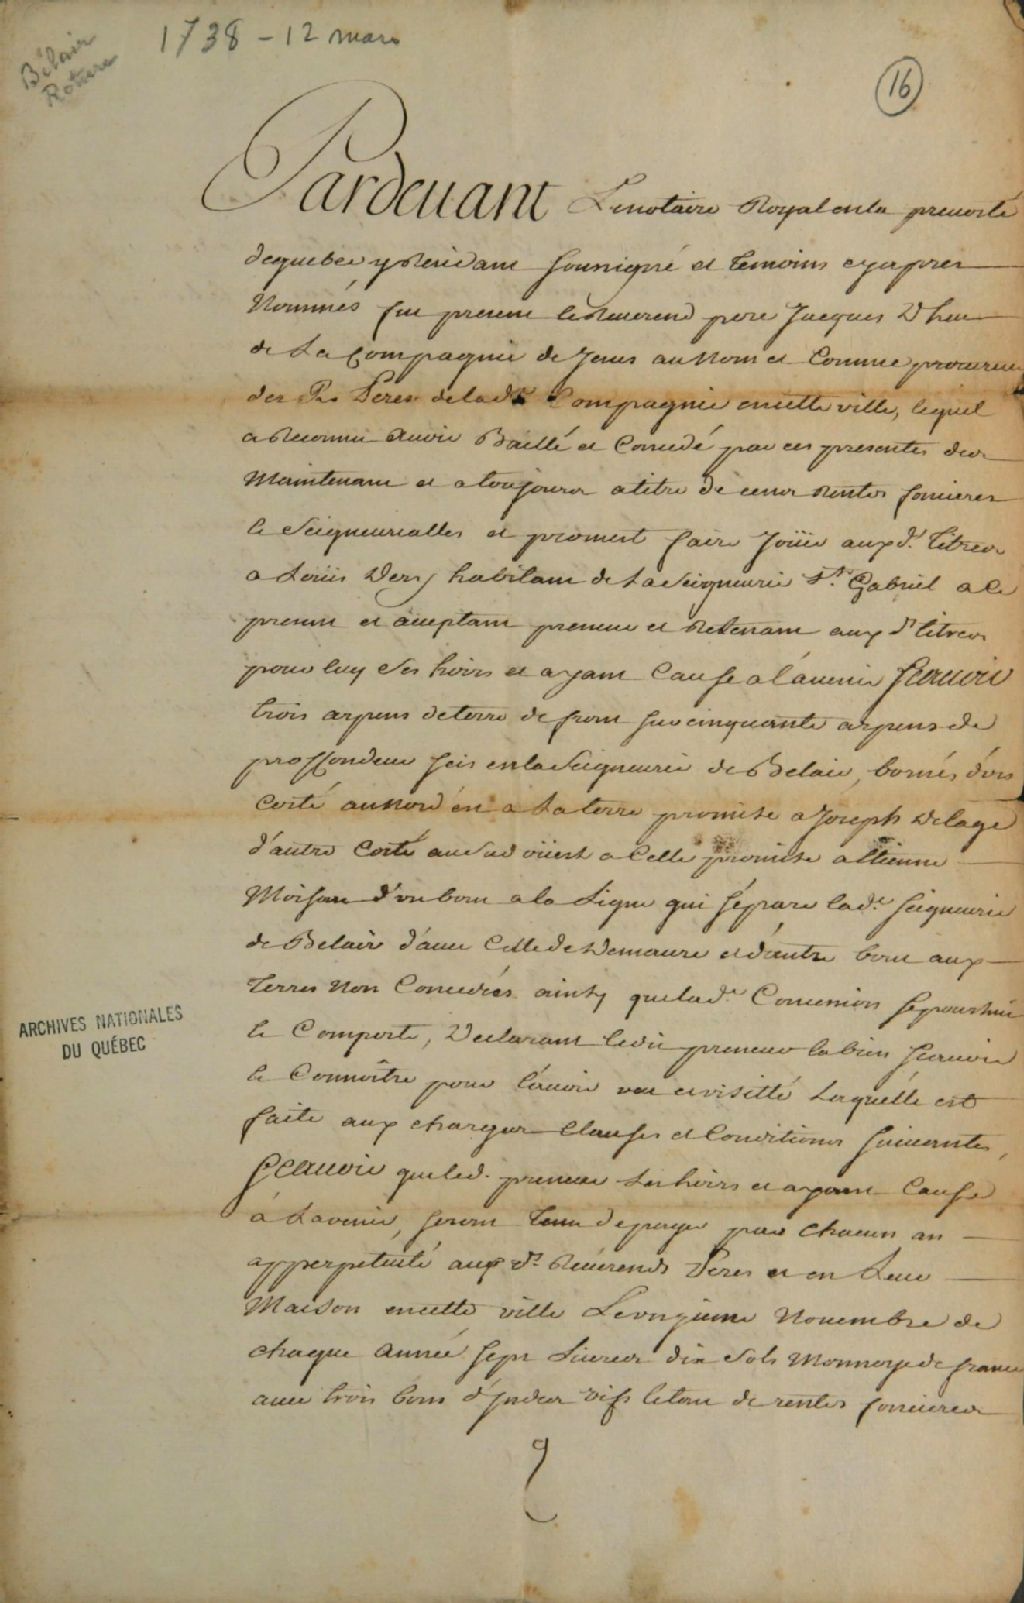 1738 - 12 mars
Bélair
Roture
16
Pardeuant Le notaire Royal en la preuosté
de quebec y Residant soussigné et temoins cy apres
Nommés fut present le Reuerend pere Jacques Dheu
de La Compagnie de Jesus au Nom et Comme procureur
des Rds Peres de lade Compagnie en cette ville, lequel
a Reconnu Auoir Baillé et Concedé par ces presentes des
Maintenant et a toujours a titre de cens Rentes foncieres
& Seigneurialles et promest faire Joüir aux ds. titres
a Loüis Dery habitant de La Seigneurie St. Gabriel a ce
present et aceptant preneur et Retenant aux ds titres
pour luy Ses hoirs et ayant Cause a l'auenir Scauoir
trois arpens de terre de front sur cinquante arpens de
proffondeur scis en la Seigneurie de Belair, bornés d'un
Costé au nord ést a La terre promise a Joseph Delage
d'autre Costé au Sud oüest a Celle promise a Etienne
Moisan d'un bout a la Ligne qui sépare lade. seigneurie
de Belair d'auec Celle de Demaure et d'autre bout aux
terres Non Concedées ainsy que lade. Concession se poursuit
& Comporte, Declarant ledit preneur la bien scauoir
& Connoître pour l'auoir vue et visitté Laquelle est
faite aux charges Clauses et Conditions suiuantes,
Scauoir que led. preneur Ses hoirs et ayant Cause
à L'avenir, seront tenu de payer par chacun an
apperpetuité aux ds. Reuerends Peres et en Leur
Maison en cette ville Le onzieme Nouembre de
chaque Année sept Liures dix Sols Monnoye de france
auec trois bons d'Jndes vifs le tout de rentes foncieres
ARCHIVES NATIONALES
DU QUÉBEC